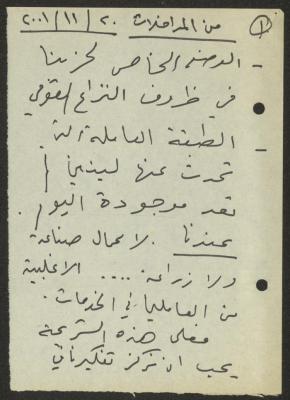 ① من المداخلات ٢٠/١١/٢٠٠١
- الوضع الخاص لحزبنا
في ظروف النزاع القومي
- الطبقة العاملة التي
تحدث عنها لينين لم
تعد موجودة اليوم.
عندنا. لا عمال صناعة
ولا زراعة .... الاغلبية
من العاملين في الخدمات.
فعلى هذه الشريحة
يجب ان نركز تفكيرنا